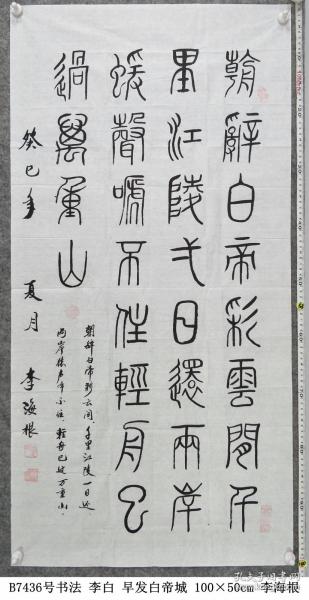 朝辭白帝彩雲間千
里江陵弌日還兩岸
猨聲嗁不住輕舟已
過萬重山
朝辞白帝彩云间千里江陵一日还
两岸猿声啼不住轻舟已过万重山
癸巳年 夏月 李海根
B7436号书法 李白 早发白帝城 100×50cm 李海根